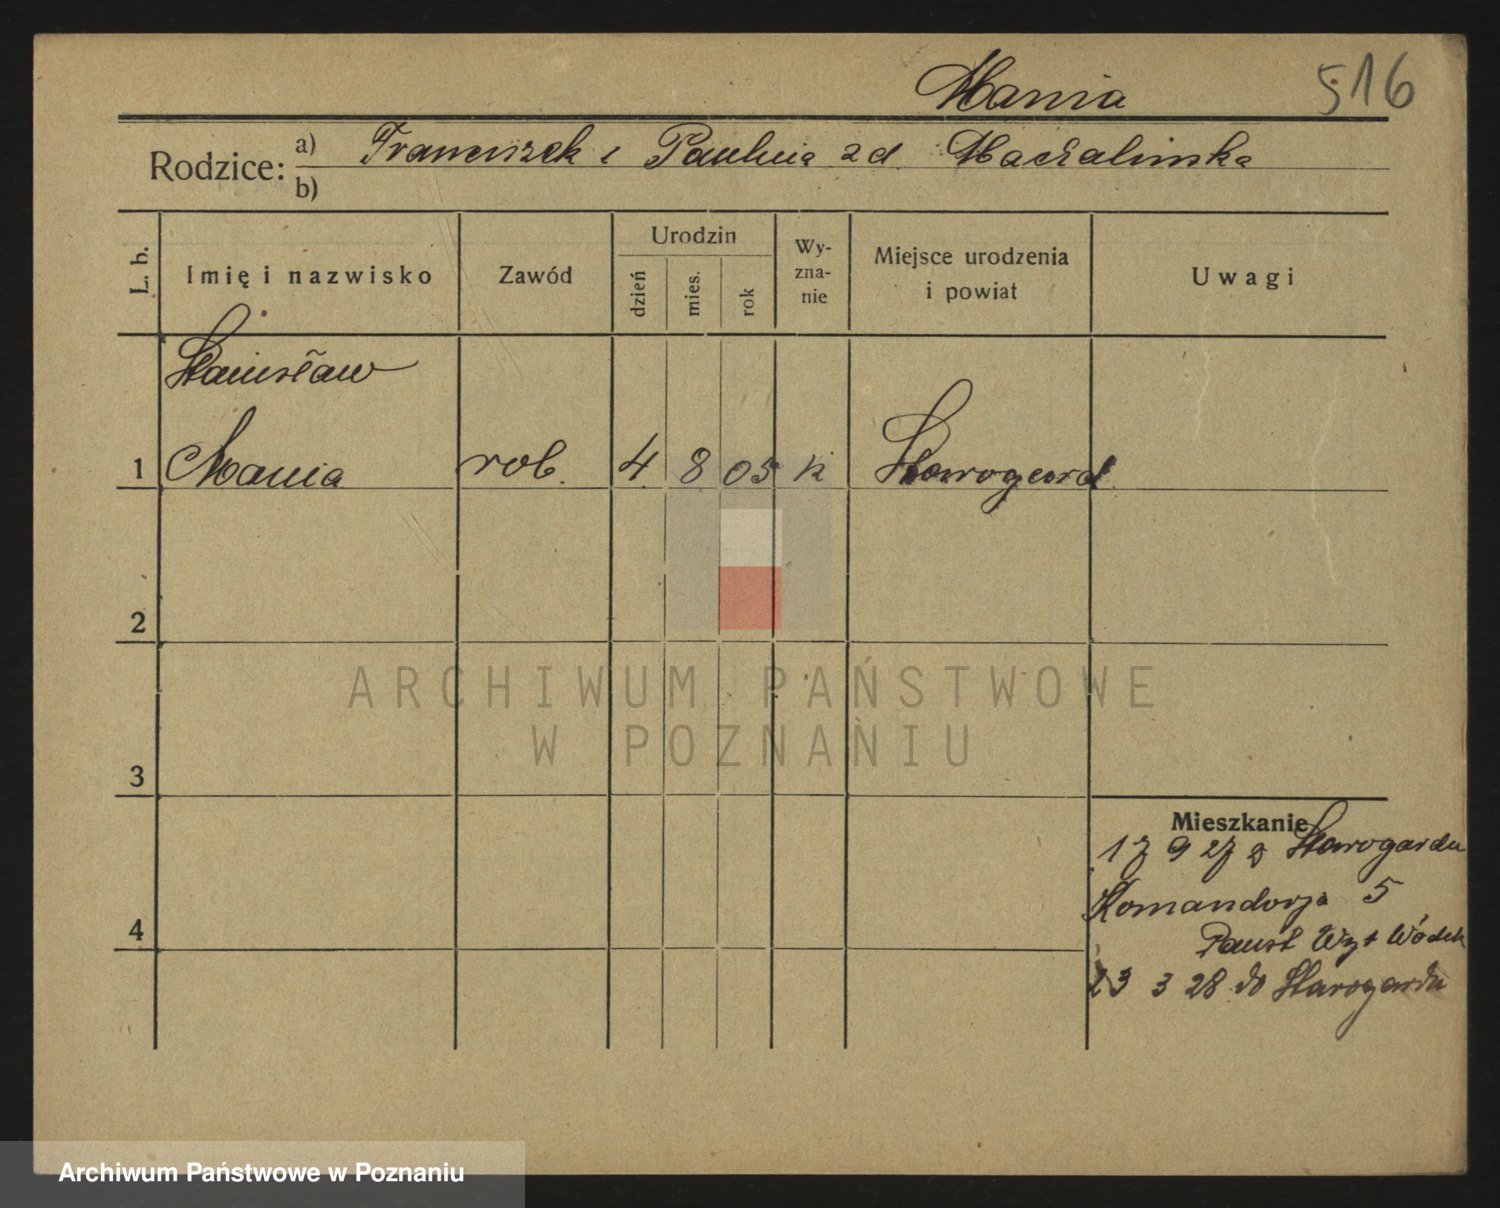 Mania 516
Rodzice: a) Franciszek i Paulina zd Machalinska
b)
L. b. Imię i nazwisko Zawód Urodzin dzień mies. rok Wy-zna-nie Miejsce urodzenia i powiat Uwagi
Stanisław
1 Mania rob. 4 8 05 k Starogard
2
ARCHIWUM PAŃSTWOWE
W POZNANIU
3
Mieszkanie
17 9 27 z Starogardu
Komandorja 5
4
Państ Wyt Wódek
23 3 28 do Starogardu
Archiwum Państwowe w Poznaniu